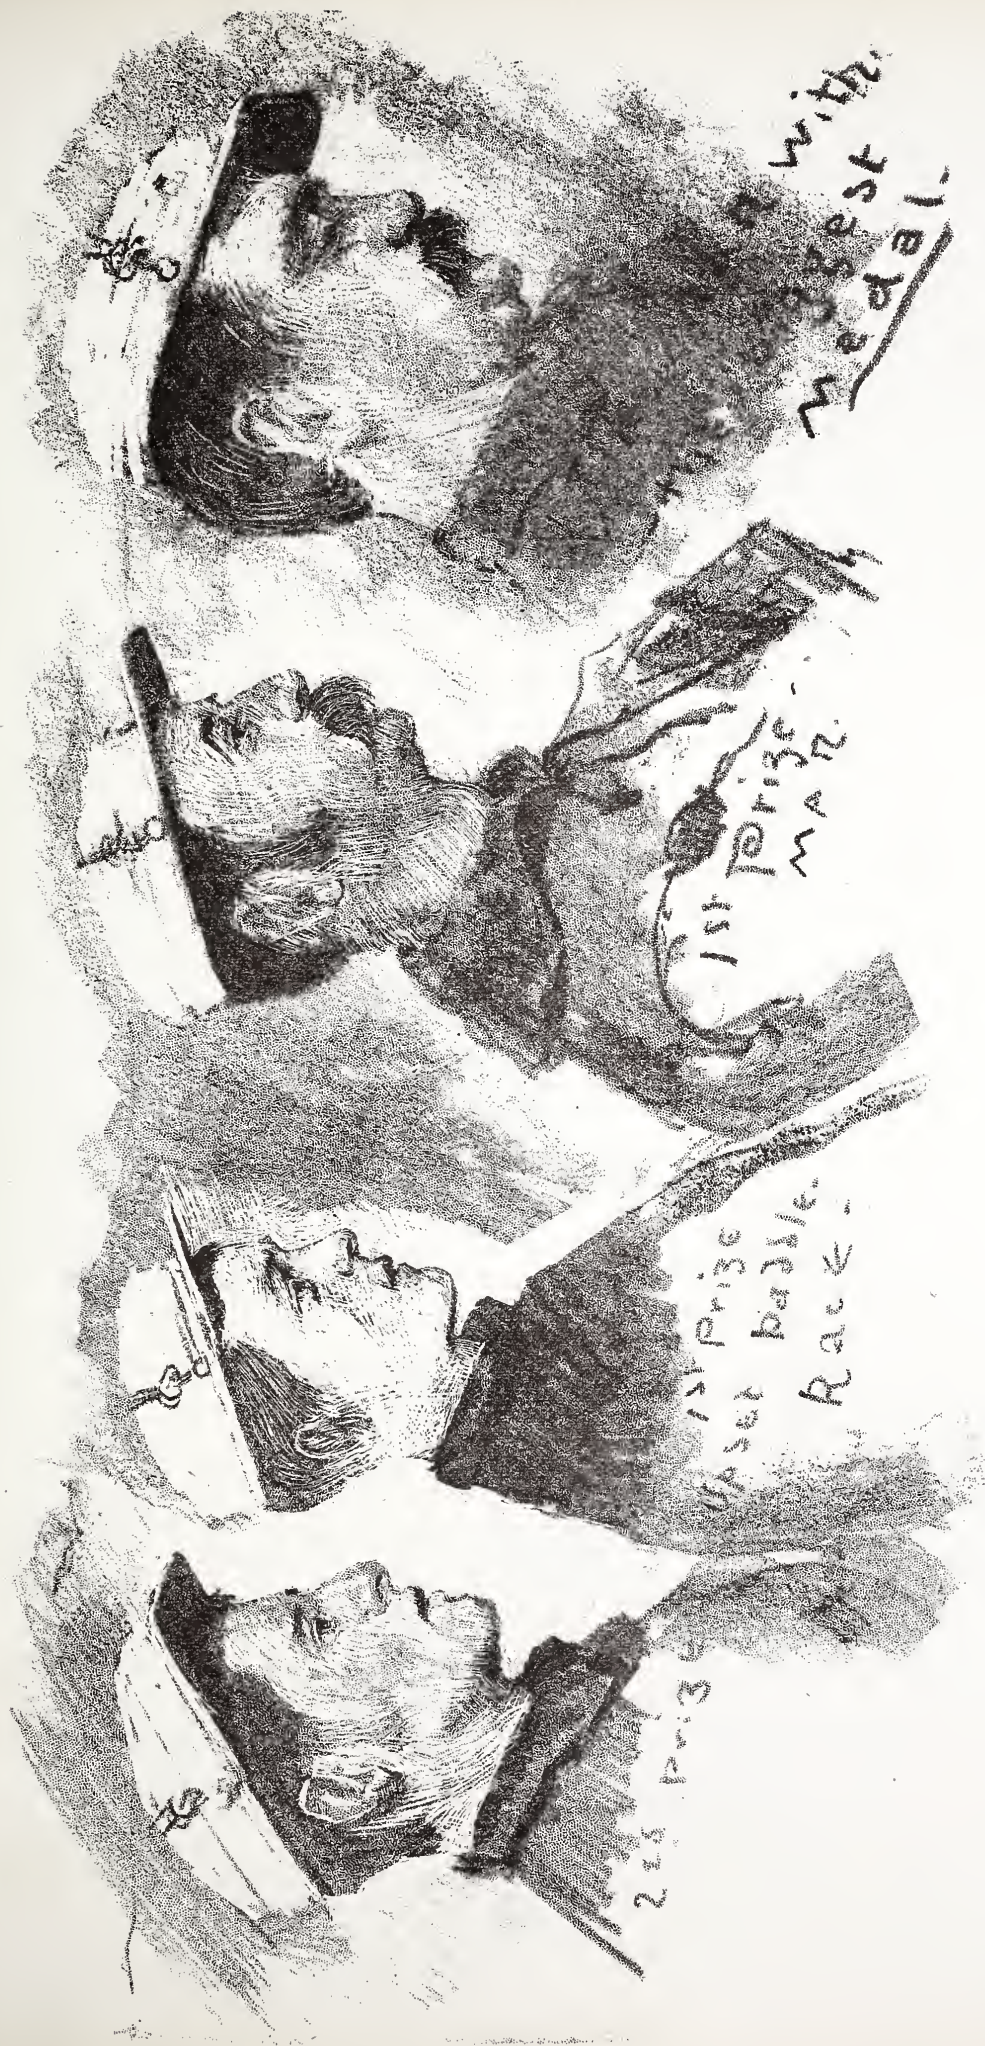 2nd prize
1st prize
upset paddle.
Race.
1st Prize-
MAN.
Man with
biggest
Medal.